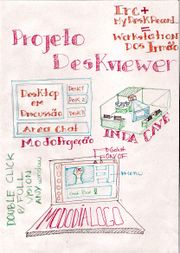 Irc +
MyDeskRecord
=
Workstation
DOS Irmão
Projeto
Deskviewer
Desktop
em
Discussão
Desk 1
Desk 2
Desk 3
Area Chat
Modo Projeção
INTA CAVE
DOUBLE CLICK
P/ FULL
VISION
ANY WINDOW
ON/OFF
MODO DIALOGO